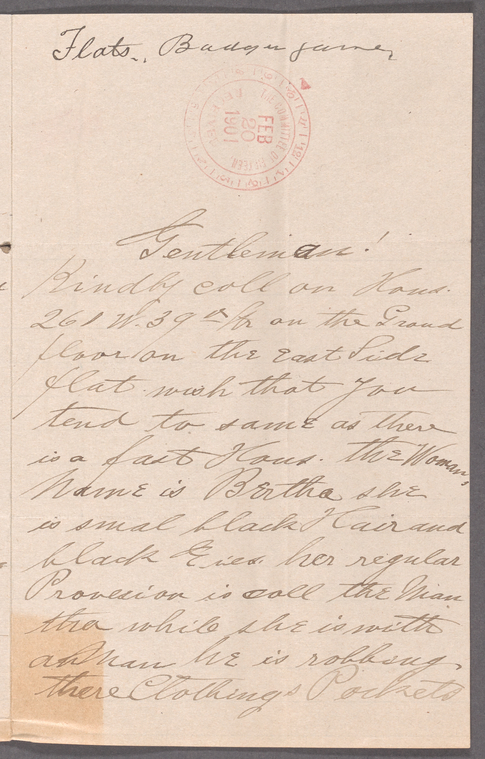 Flats., Badger game,
COMMITTEE OF FIFTEEN
FEB
20
1901
Gentleman!
Kindly coll on Hous.
261 W. 39th Str on the Groud
floor on the East Side
flat wish that you
tend to same as there
is a fast Hous. the Womans
Name is Bertha she
is smal black Hair and
black Eies. her regular
Provesion is coll the Man
tha while she is with
an Man he is robbeng
there Clothings Pockets